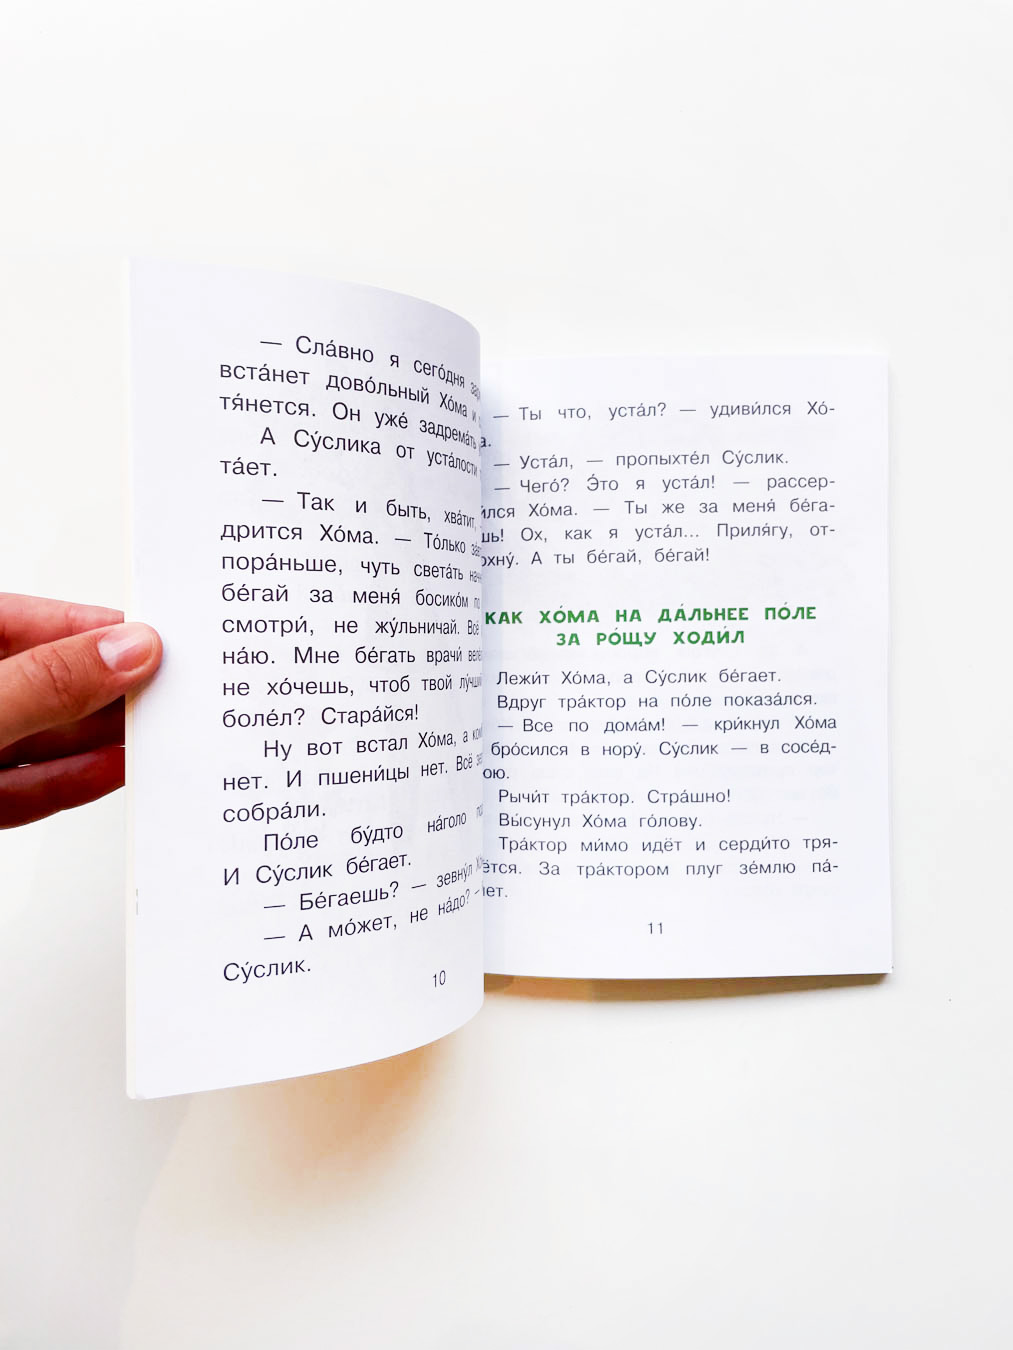 — Сла́вно я сего́дня
вста́нет дово́льный Хо́ма и
тя́нется. Он уже́ задрема́ть
А Су́слика от уста́лости
та́ет.
— Так и быть, хва́тит,
дрится Хо́ма. — То́лько
пора́ньше, чуть света́ть
бе́гай за меня́ босико́м по
смотри́, не жу́льничай. Всё
на́ю. Мне бе́гать врачи́
не хо́чешь, чтоб твой лу́чший
боле́л? Стара́йся!
Ну вот встал Хо́ма, а
нет. И пшени́цы нет. Всё
собра́ли.
По́ле бу́дто на́голо
И Су́слик бе́гает.
— Бе́гаешь? — зевну́л
— А мо́жет, не на́до? —
Су́слик.
10
— Ты что, уста́л? — удиви́лся Хо́-
а.
— Уста́л, — пропыхте́л Су́слик.
— Чего́? Э́то я уста́л! — рассер-
и́лся Хо́ма. — Ты же за меня́ бе́га-
шь! Ох, как я уста́л... Приля́гу, от-
охну́. А ты бе́гай, бе́гай!
КАК ХО́МА НА ДА́ЛЬНЕЕ ПО́ЛЕ
ЗА РО́ЩУ ХОДИ́Л
Лежи́т Хо́ма, а Су́слик бе́гает.
Вдруг тра́ктор на по́ле показа́лся.
— Все по дома́м! — кри́кнул Хо́ма
бро́сился в нору́. Су́слик — в сосе́д-
юю.
Рычи́т тра́ктор. Стра́шно!
Вы́сунул Хо́ма го́лову.
Тра́ктор ми́мо идёт и серди́то тря-
ётся. За тра́ктором плуг зе́млю па́-
шет.
11